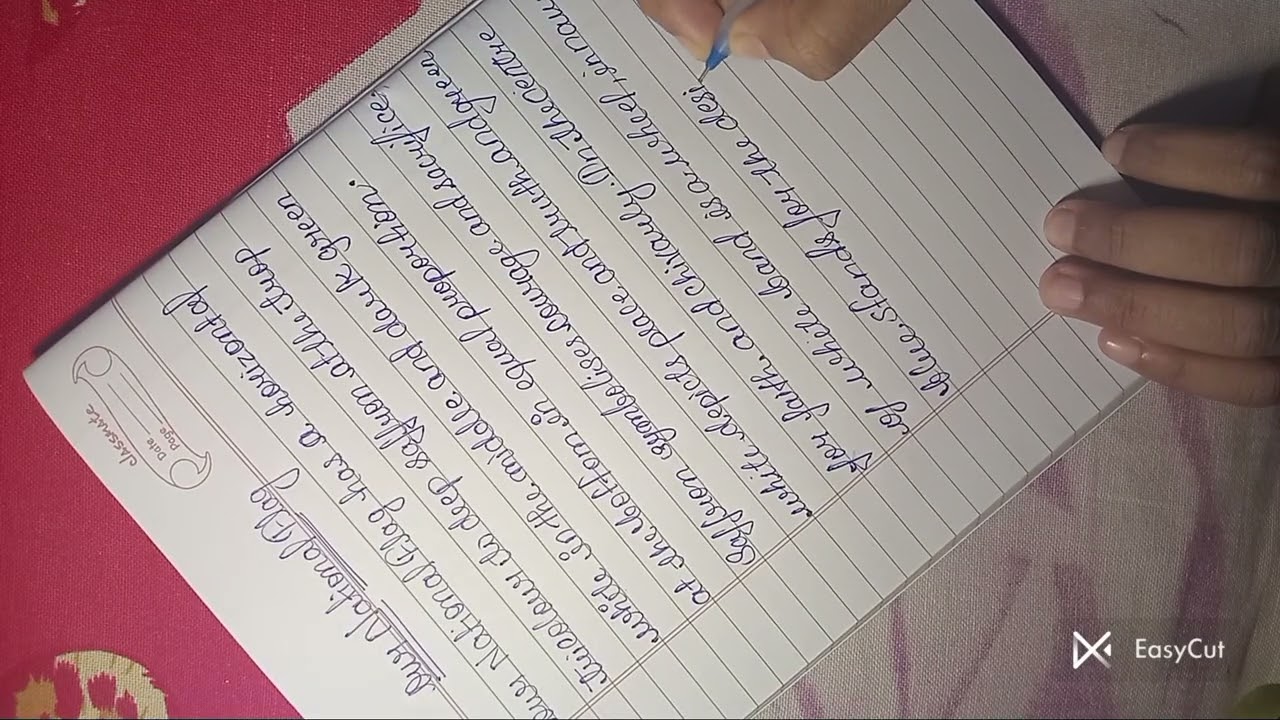 classmate
Date
Page
Our National Flag
Our National Flag has a horizontal
tricolour its deep saffron at the trop
white in the middle and dark green
at the bottom in equal proportion.
Saffron symbolises courage and sacrifice,
white depicts peace and truth and green
for faith and chivalry. In the centre
of white band is a wheel, in nav
blue. Stands for the desi
EasyCut